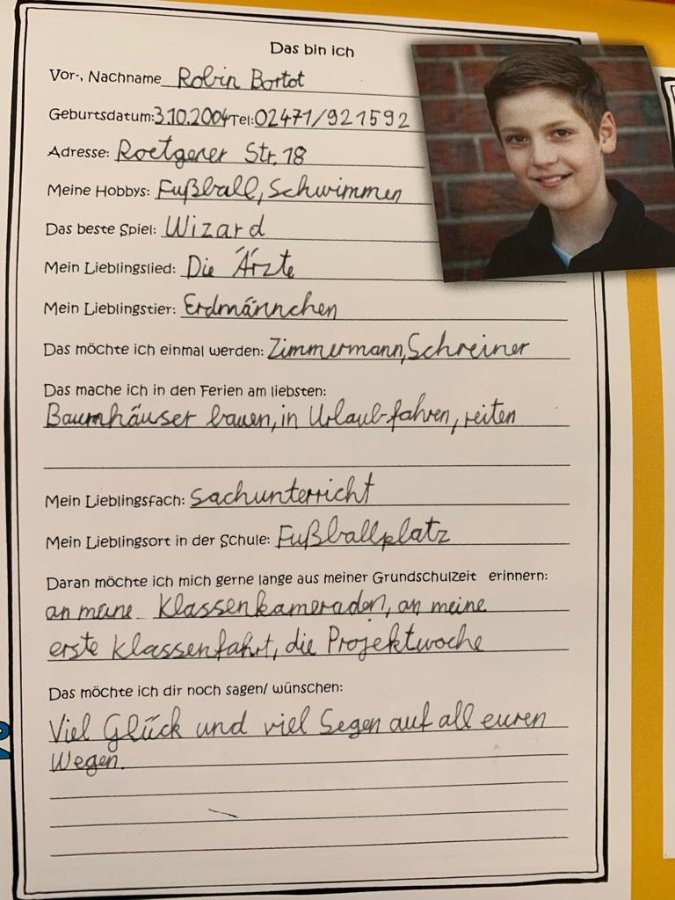 Das bin ich
Vor-, Nachname Robin Bortot
Geburtsdatum: 3.10.2004 Tel: 02471/921592
Adresse: Roetgener Str. 18
Meine Hobbys: Fußball, Schwimmen
Das beste Spiel: Wizard
Mein Lieblingslied: Die Ärzte
Mein Lieblingstier: Erdmännchen
Das möchte ich einmal werden: Zimmermann, Schreiner
Das mache ich in den Ferien am liebsten:
Baumhäuser bauen, in Urlaub fahren, reiten
Mein Lieblingsfach: Sachunterricht
Mein Lieblingsort in der Schule: Fußballplatz
Daran möchte ich mich gerne lange aus meiner Grundschulzeit erinnern:
an meine Klassenkameraden, an meine
erste Klassenfahrt, die Projektwoche
Das möchte ich dir noch sagen/ wünschen:
Viel Glück und viel Segen auf all euren
Wegen.